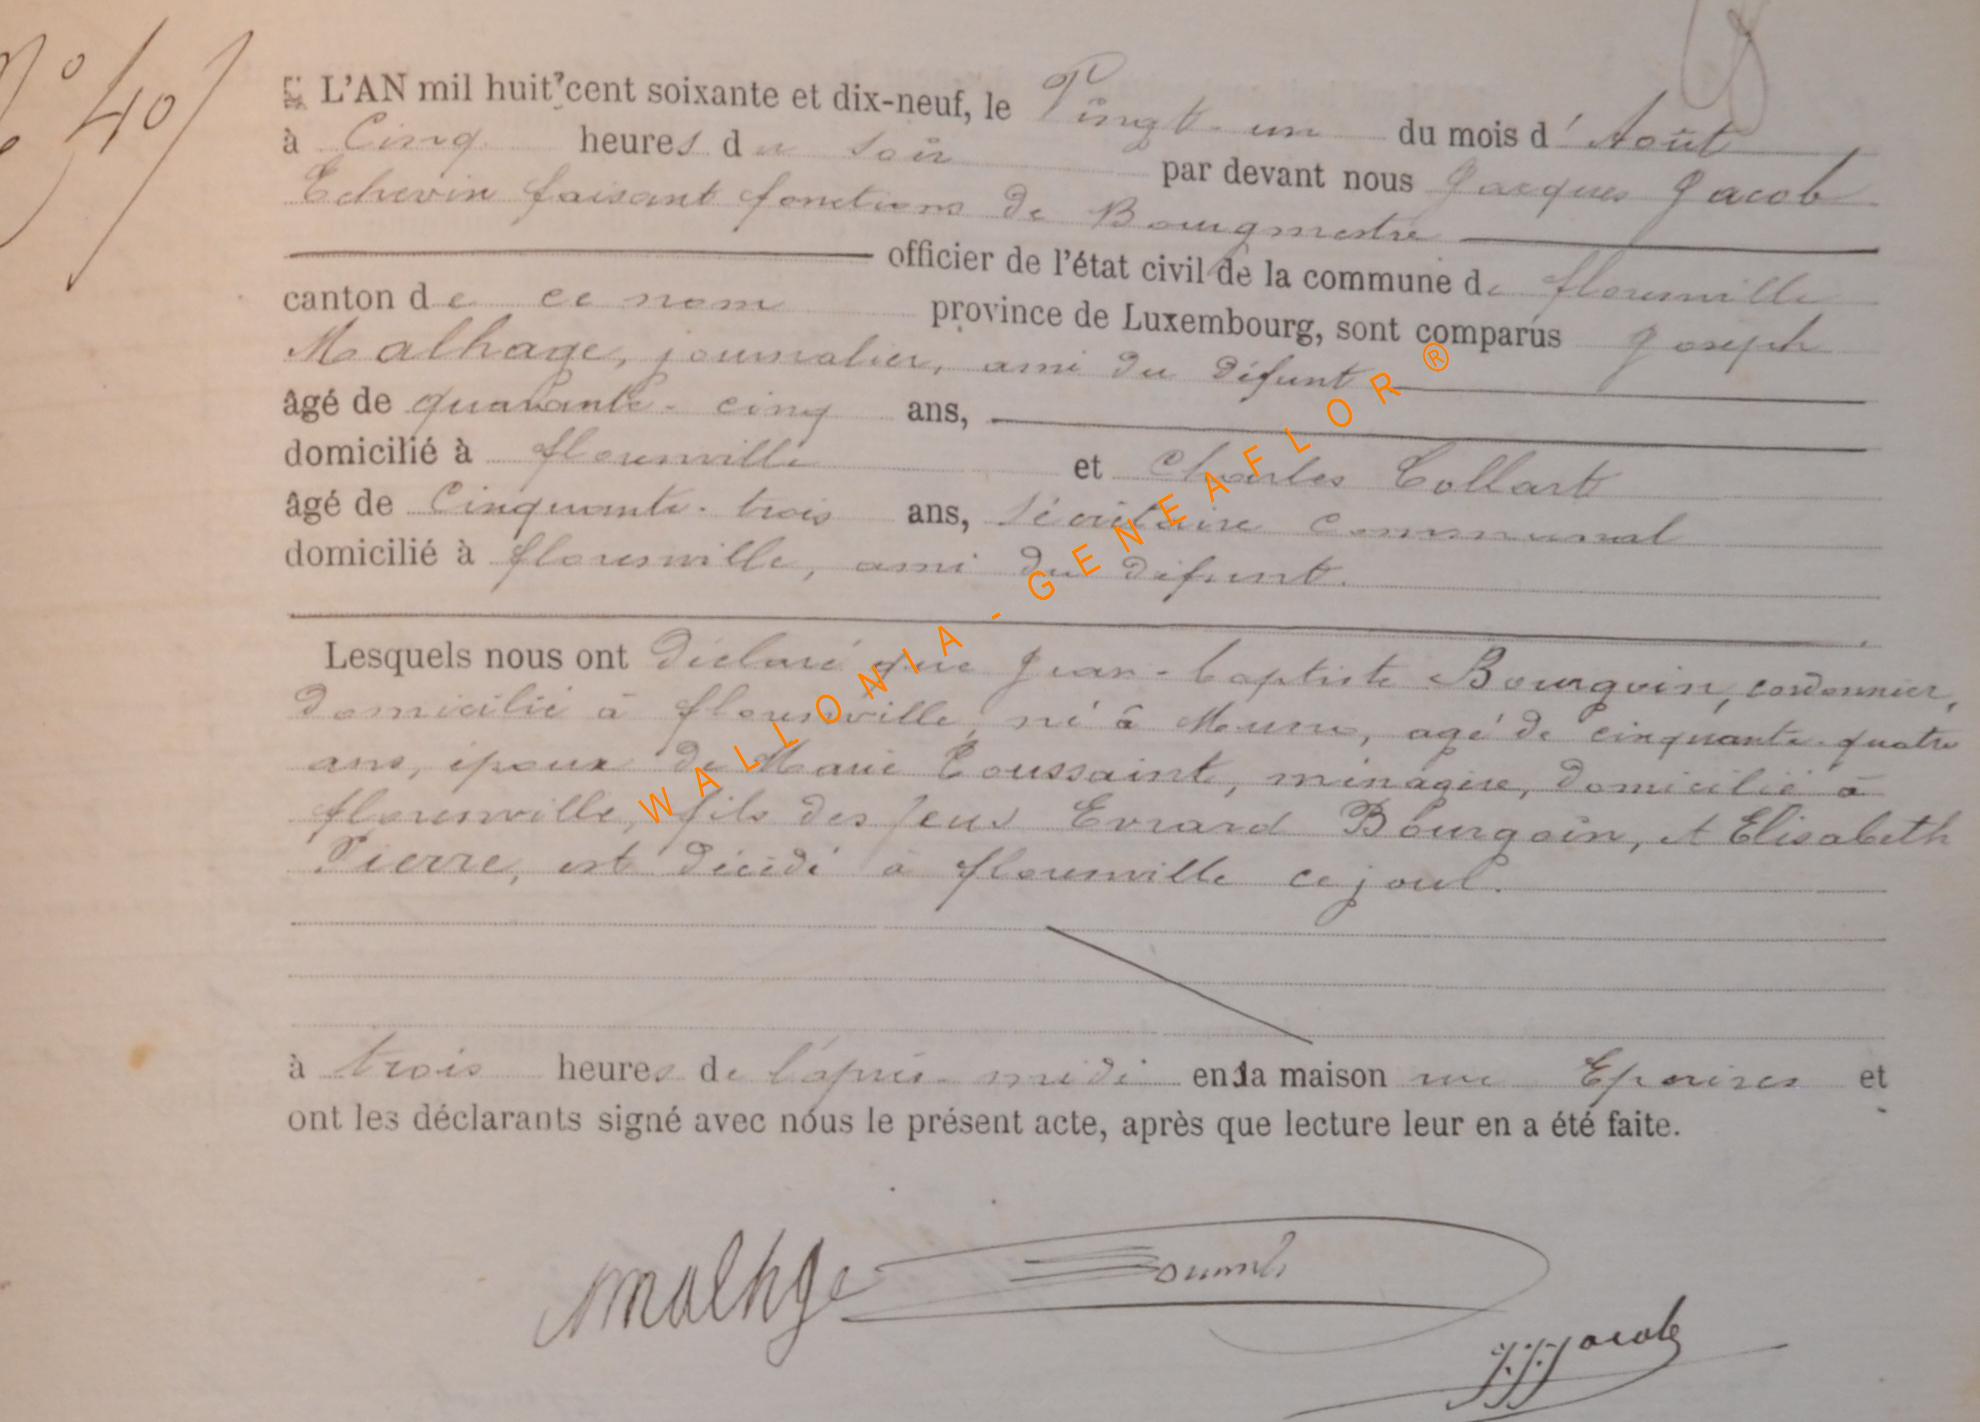 N° 40
L'AN mil huit cent soixante et dix-neuf, le Vingt-un du mois d'Août
à Cinq heures du soir par devant nous Jacques Jacob
Echevin faisant fonctions de Bourgmestre
officier de l'état civil de la commune de florenville
canton de ce nom province de Luxembourg, sont comparus Joseph
Malhage, journalier, ami du défunt
âgé de quarante-cinq ans,
domicilié à florenville et Charles Collart
âgé de Cinquante-trois ans, Sécrétaire Communal
domicilié à florenville, ami du défunt.
Lesquels nous ont déclaré que Jean-baptiste Bourgoin, cordonnier,
domicilié à florenville, né à Muno, agé de cinquante-quatre
ans, époux de Marie Toussaint, ménagère, domicilié à
florenville, fils des feus Evrard Bourgoin, et Elisabeth
Pierre, est décédé à florenville ce jour.
à trois heures de l'après-midi en la maison rue Epouises et
ont les déclarants signé avec nous le présent acte, après que lecture leur en a été faite.
Malhge
J.J. Jacob
WALLONIA - GENEAFLOR ®